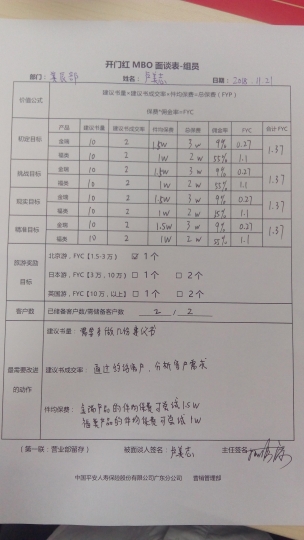 开门红 MBO 面谈表-组员
部门： 姓名： 卢美志 日期： 2018.11.21
价值公式 建议书量×建议书成交率×件均保费=总保费（FYP）
保费×佣金率=FYC
产品 建议书量 建议书成交率 件均保费 总保费 佣金率 FYC 合计 FYC
初定目标 金瑞 10 2 1.5w 3w 9% 0.27 1.37
福类 10 2 1w 2w 55% 1.1
挑战目标 金瑞 10 2 1.5w 3w 9% 0.27 1.37
福类 10 2 1w 2w 55% 1.1
现实目标 金瑞 10 2 1.5w 3w 9% 0.27 1.37
福类 10 2 1w 2w 55% 1.1
精准目标 金瑞 10 2 1.5w 3w 9% 0.27 1.37
福类 10 2 1w 2w 55% 1.1
旅游奖励目标 北京游，FYC【1.5-3万】 ☑ 1个
日本游，FYC【3万，10万】 □ 1个 □ 2个
英国游，FYC【10万，以上】 □ 1个 □ 2个
客户数 已储备客户数/需储备客户数 2 / 2
最需要改进的动作
建议书量： 需要多做几份建议书
建议书成交率： 通过 客户，分析客户需求
件均保费： 金瑞产品的件均保费可尝试1.5w
福类产品的件均保费可尝试1w
（第一联：营业部留存） 被面谈人签名： 卢美志 主任签名：
中国平安人寿保险股份有限公司广东分公司 营销管理部